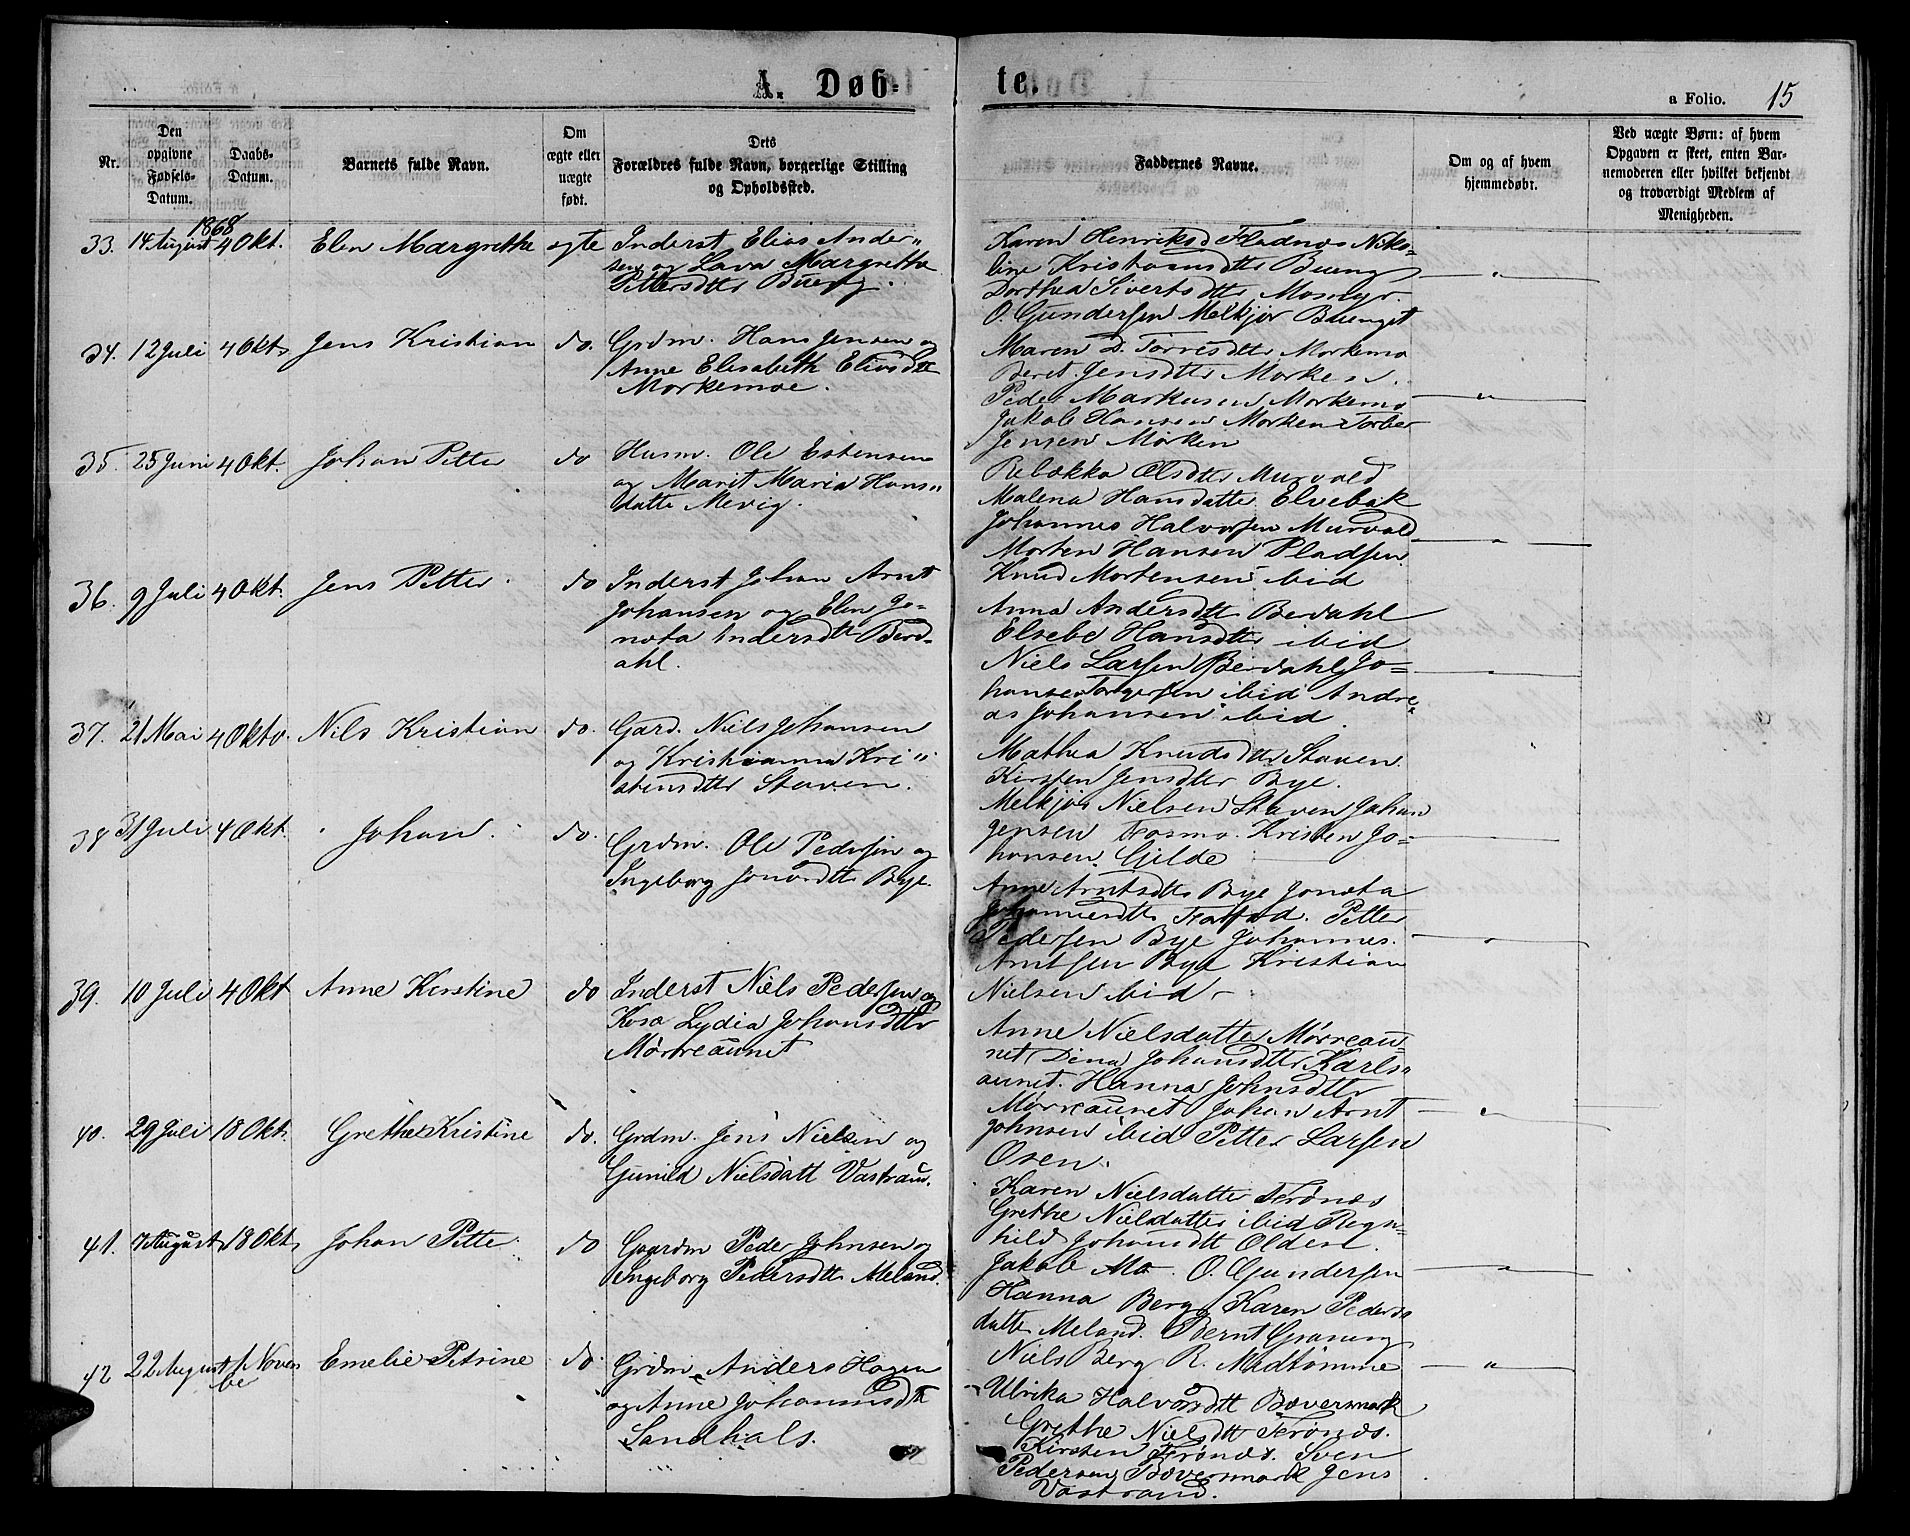 A. Døb-
te.
a Folio. 15
Nr.
Den opgivne Fødsels-Datum.
Daabs-Datum.
Barnets fulde Navn.
Om ægte eller uægte født.
Dets Forældres fulde Navn, borgerlige Stilling og Opholdssted.
Faddernes Navne.
Om og af hvem hjemmedøbt.
Ved uægte Børn: af hvem Opgaven er skeet, enten Barnemoderen eller hvilket bekjendt og troværdigt Medlem af Menigheden.
1868
33. 14 August 4 Okt. Elen Margrethe ægte Inderst Elias Ander-
sen og Lava Margrethe
Pettersdtr Bueng.
Karen Henriksd Fladnes Niko-
line Kristiansdtr Bueng
Dorthea Sivertsdtr Momyr.
O. Gundersen Melkjør Buenget
34. 12 Juli 4 Okt. Jens Kristian do. Grdm. Hans Jensen og
Anne Elisabeth Eliasdtt
Morkemoe.
Maren D. Torresdtr Morkemo
Beret Jensdtr Morken.
Peder Markusen Morkemo
Jakob Hansen Morken Torber
Jensen Morken
35. 25 Juni 4 Okt. Johan Petter do Husm. Ole Estensen
og Marit Maria Hans-
datte Mevig.
Rebekka Olsdtr Murvold
Malena Hansdatte Elvebak
Johannes Halvorsen Murvold
Morten Hansen Pladsen
Knud Mortensen ibid
36. 9 Juli 4 Okt. Jens Petter. do Inderst Johan Arnt
Johansen og Elen Jo-
neta Andersdtt Berd-
ahl.
Anna Andersdtt Berdahl
Elsebe Hansdtr ibid
Niels Larsen Berdahl Jo-
hanes Torgersen ibid Andre-
as Johansen ibid.
37. 21 Mai 4 Okto. Nils Kristian do. Gard. Niels Johansen
og Kristianna Kri-
stensdtr Staven.
Mathea Knudsdtr Staven
Kirsten Jensdtr Bye.
Melkjør Nielsen Staven Johan
Jensen Fosmo. Kristen Jo-
hansen Gilde
38 31 Juli 4 Okt. Johan. do. Grdm. Ole Pedersen og
Ingeborg Jonasdtt Bye.
Anne Arntsdtr Bye Joneta
Johannesdtt. Petter
Pedersen Bye Johannes.
Arntsen Bye Kristian
Nielsen ibid
39. 10 Juli 4 Okt Anne Kirstine do Inderst Niels Pedersen og
Lydia Johansdtr
Mørreaunet
Anne Nielsdatte Mørreau-
net Dina Johansdtr Karls-
aunet. Hanna Johnsdtr
Mørreaunet Johan Arnt
Johnsen ibid Petter Larsen
Osen.
40. 29 Juli 18 Okt. Grethe Kristine do. Grdm. Jens Nielsen og
Gunild Nielsdatt Vastran.
Karen Nielsdatte Terønes
Grethe Nielsdatter ibid Regn-
hild Johansdtt Olden.
Jakob Mo. O. Gundersen
41. 7 August 18 Okt. Johan Pette do Gaardm Peder Johnsen og
Ingeborg Pedersdtr Meland.
Hanna Berg Karen Peders-
datte Meland. Bernt Graneng
Niels Berg R. Midtømme
42 22 August 1 Novem
be
Emelie Petrine do. Grdm. Anders Hagen
og Anne Johannesdtt
Sandhals.
Ulrika Halvorsdtt Bøvermark
Grethe Nielsdtt Terønes.
Kirsten Terønes. Sven
Pedersen Bøvermark Jens
Vastrand.